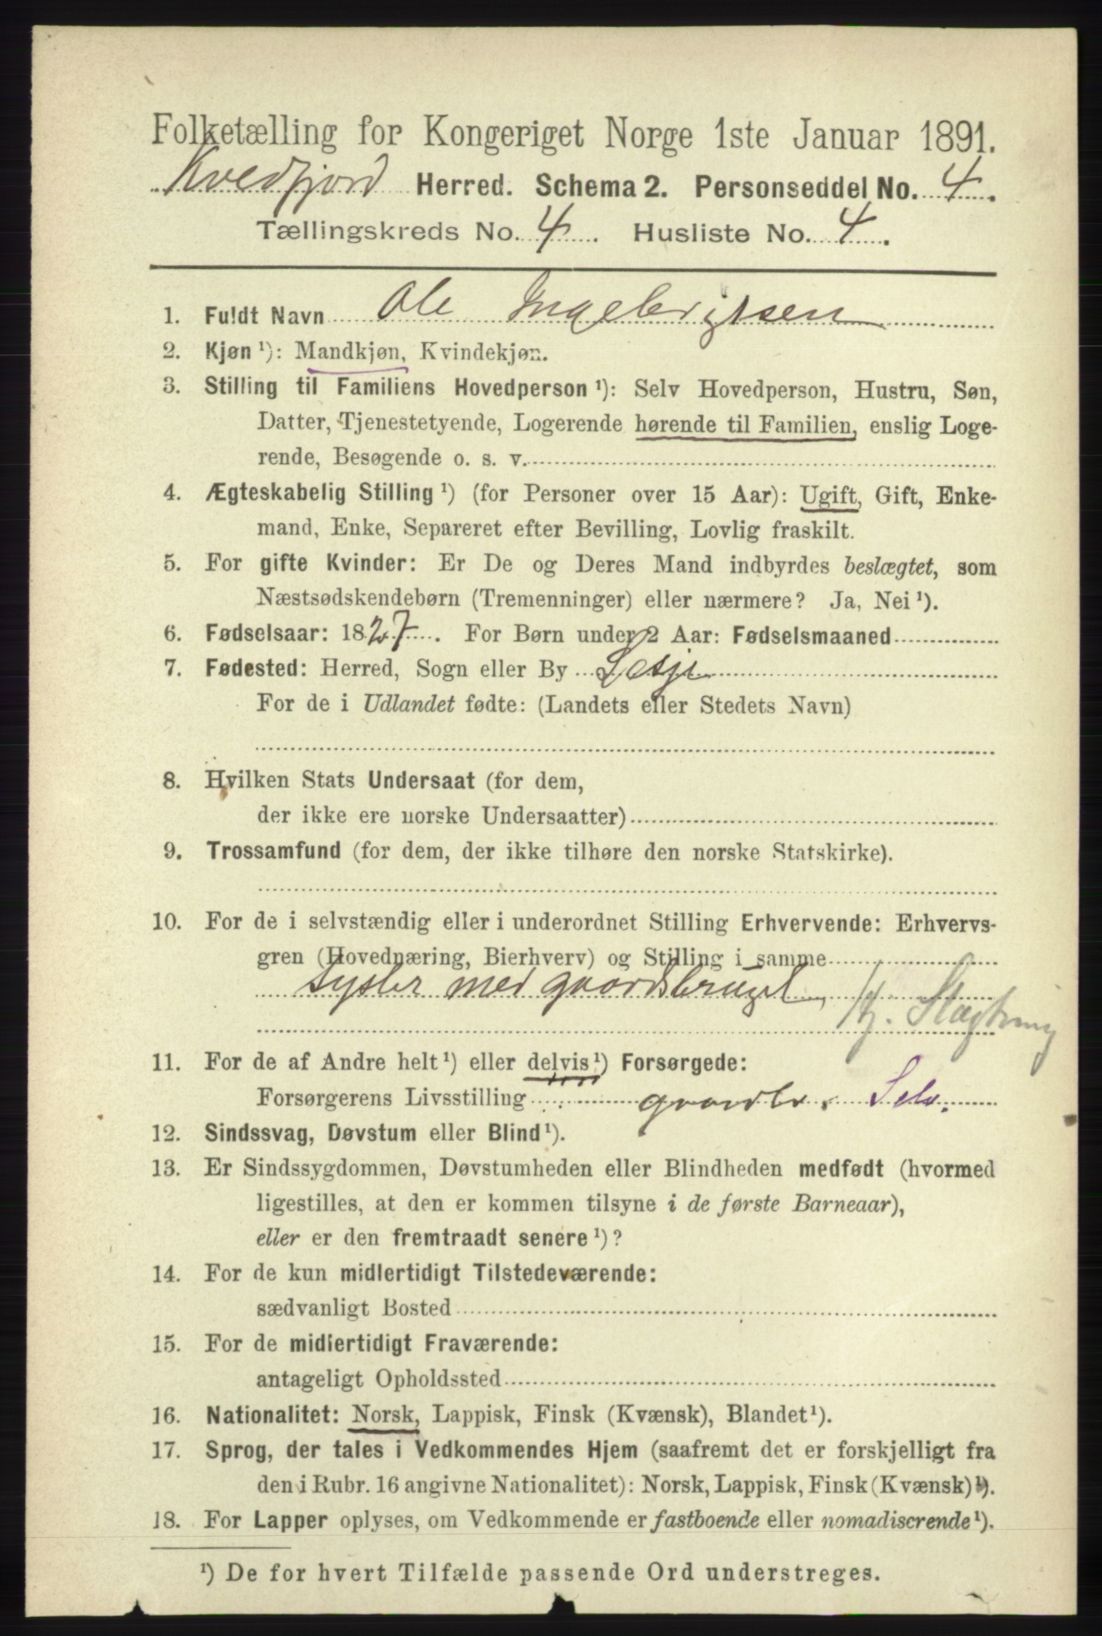 Folketælling for Kongeriget Norge 1ste Januar 1891.
Kvedfjord Herred. Schema 2. Personseddel No. 4.
Tællingskreds No. 4. Husliste No. 4.
1. Fuldt Navn Ole Ingebrigtsen
2. Kjøn ¹): Mandkjøn, Kvindekjøn.
3. Stilling til Familiens Hovedperson ¹): Selv Hovedperson, Hustru, Søn,
Datter, Tjenestetyende, Logerende hørende til Familien, enslig Loge-
rende, Besøgende o. s. v.
4. Ægteskabelig Stilling ¹) (for Personer over 15 Aar): Ugift, Gift, Enke-
mand, Enke, Separeret efter Bevilling, Lovlig fraskilt.
5. For gifte Kvinder: Er De og Deres Mand indbyrdes beslægtet, som
Næstsødskendebørn (Tremenninger) eller nærmere? Ja, Nei ¹).
6. Fødselsaar: 1827. For Børn under 2 Aar: Fødselsmaaned
7. Fødested: Herred, Sogn eller By Lesje
For de i Udlandet fødte: (Landets eller Stedets Navn)
8. Hvilken Stats Undersaat (for dem,
der ikke ere norske Undersaatter)
9. Trossamfund (for dem, der ikke tilhøre den norske Statskirke).
10. For de i selvstændig eller i underordnet Stilling Erhvervende: Erhvervs-
gren (Hovednæring, Bierhverv) og Stilling i samme
sysler med gaardsbruget, Hj. Slægtning
11. For de af Andre helt ¹) eller delvis ¹) Forsørgede:
Forsørgerens Livsstilling gaardbr. Selv.
12. Sindssvag, Døvstum eller Blind ¹).
13. Er Sindssygdommen, Døvstumheden eller Blindheden medfødt (hvormed
ligestilles, at den er kommen tilsyne i de første Barneaar),
eller er den fremtraadt senere ¹)?
14. For de kun midlertidigt Tilstedeværende:
sædvanligt Bosted
15. For de midlertidigt Fraværende:
antageligt Opholdssted
16. Nationalitet: Norsk, Lappisk, Finsk (Kvænsk), Blandet ¹).
17. Sprog, der tales i Vedkommendes Hjem (saafremt det er forskjelligt fra
den i Rubr. 16 angivne Nationalitet): Norsk, Lappisk, Finsk (Kvænsk) ¹).
18. For Lapper oplyses, om Vedkommende er fastboende eller nomadiserende ¹).
¹) De for hvert Tilfælde passende Ord understreges.